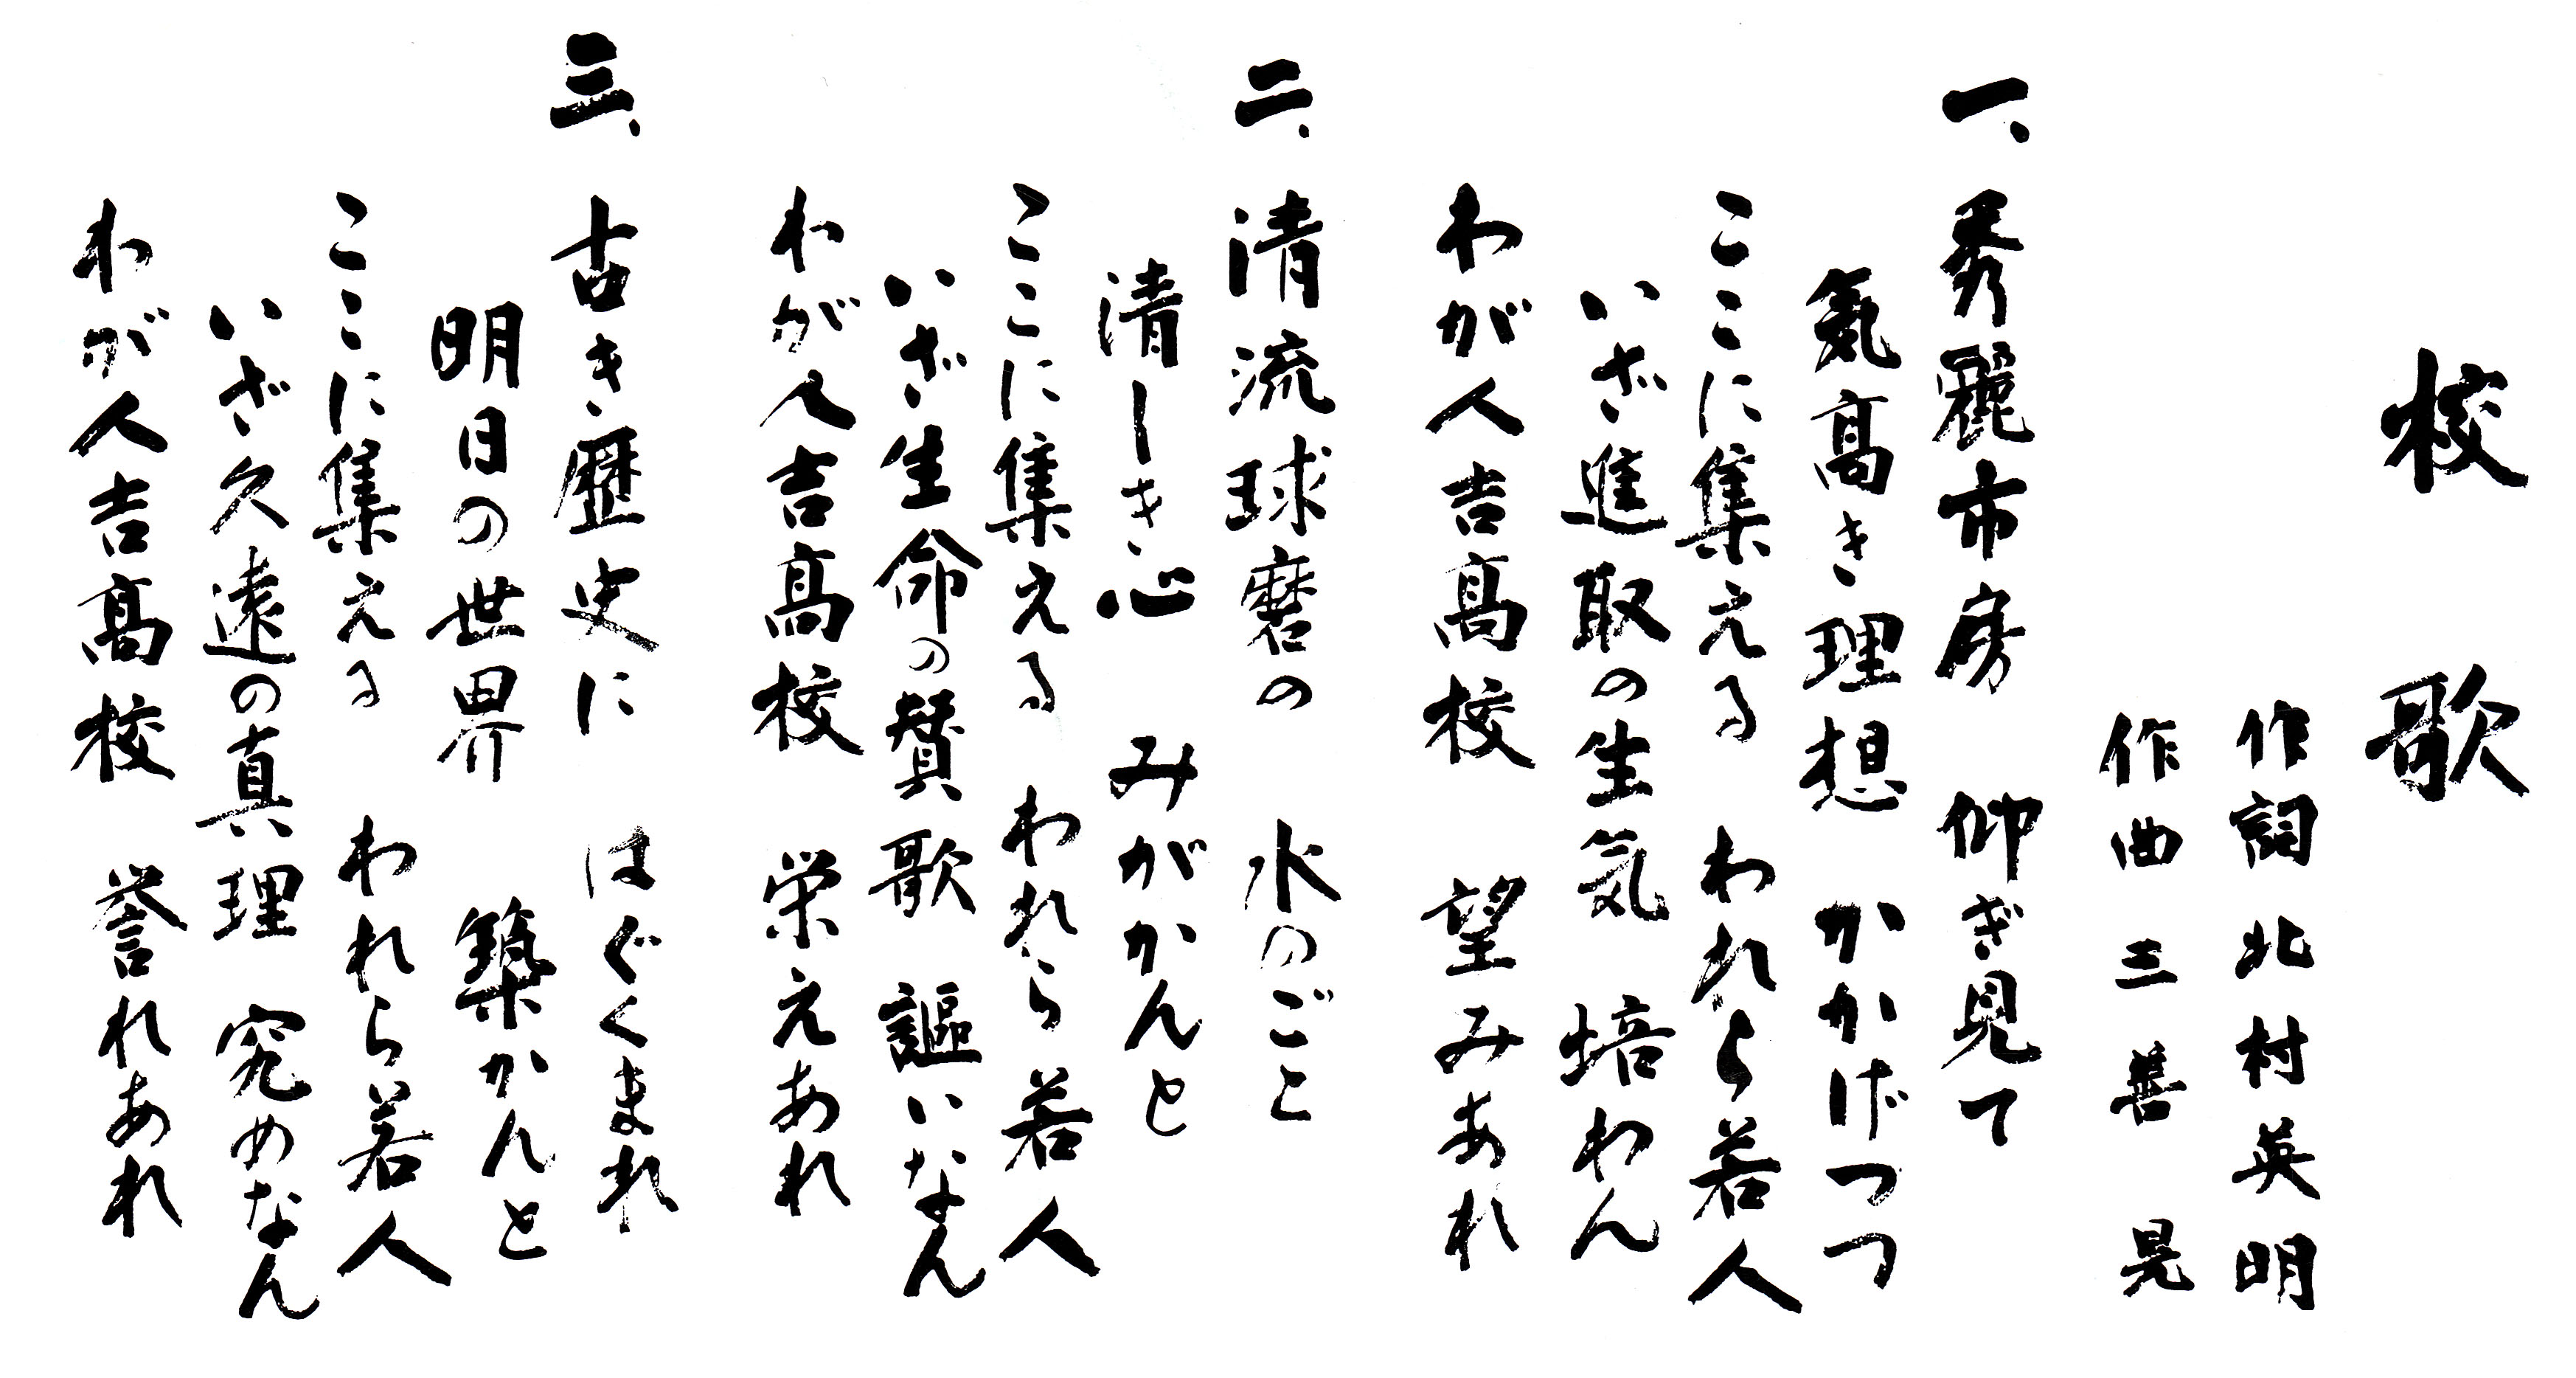 校　歌
作詞 北村英明
作曲 三善　晃
一、秀麗市房　仰ぎ見て
気高き理想　かかげつつ
ここに集える　われら若人
いざ進取の生気　培わん
わが人吉高校　望みあれ
二、清流球磨の　水のごと
清しき心　みがかんと
ここに集える　われら若人
いざ生命の賛歌　謳いなん
わが人吉高校　栄えあれ
三、古き歴史に　はぐくまれ
明日の世界　築かんと
ここに集える　われら若人
いざ久遠の真理　究めなん
わが人吉高校　誉れあれ